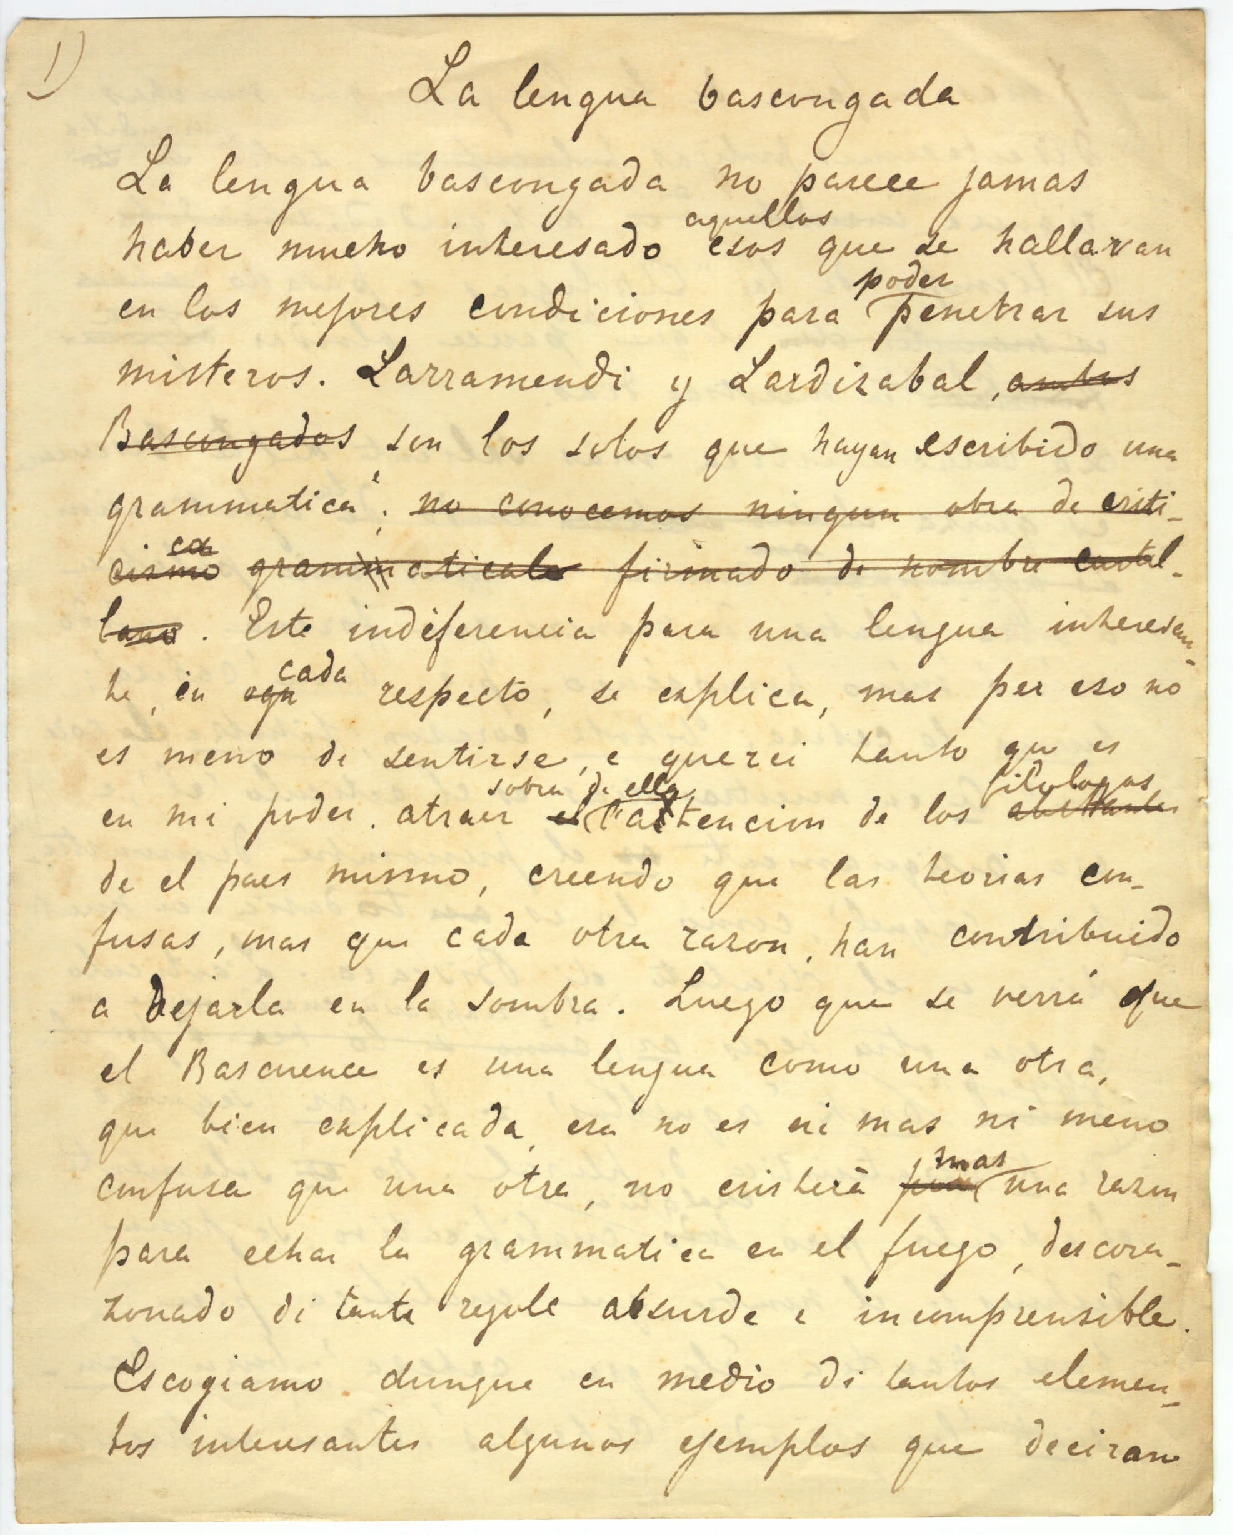 1)
La lengua bascongada
La lengua bascongada no parece jamas
aquellos
haber mucho interesado esos que se hallavan
poder
en los mejores condiciones para penetrar sus
misteros. Larramendi y Lardizabal, ambos
Bascongados son los solos que hayan escribido una
grammatica; no conocemos ningun obra de criti-
ca
cismo grammaticale firmado de nombre castel-
lano. Este indeferencia para una lengua interesan-
cada
te, en ogn respecto, se explica, mas per eso no
es meno de sentirse, e querei tanto que es
sobra de ella filologos
en mi poder. atraer el l'attencion de los
de el paes mismo, creendo que las teorias con-
fusas, mas que cada otra razon, han contribuido
a dejarla en la sombra. Luego que se verrá que
el Bascuence es una lengua como una otra,
que bien explicada, esa no es ni mas ni meno
mas
confusa que una otra, no existerà una razon
para echar la grammatica en el fuego, descora-
zonado di tante regole absurde e incomprensible.
Escogiamo dunque en medio di tantos elemen-
tos interesantes algunos ejemplos que deciran